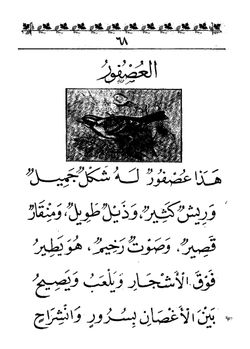 ٦٨
العُصْفُورُ
هَذَا عُصْفُورٌ لَهُ شَكْلٌ جَمِيلٌ
وَرِيشٌ كَثِيرٌ، وَذَيْلٌ طَوِيلٌ، وَمِنْقَارٌ
قَصِيرٌ، وَصَوْتٌ رَخِيمٌ، هُوَ يَطِيرُ
فَوْقَ الْأَشْجَارِ وَيَلْعَبُ وَيَصِيحُ
بَيْنَ الْأَغْصَانِ بِسُرُورٍ وَانْشِرَاحٍ